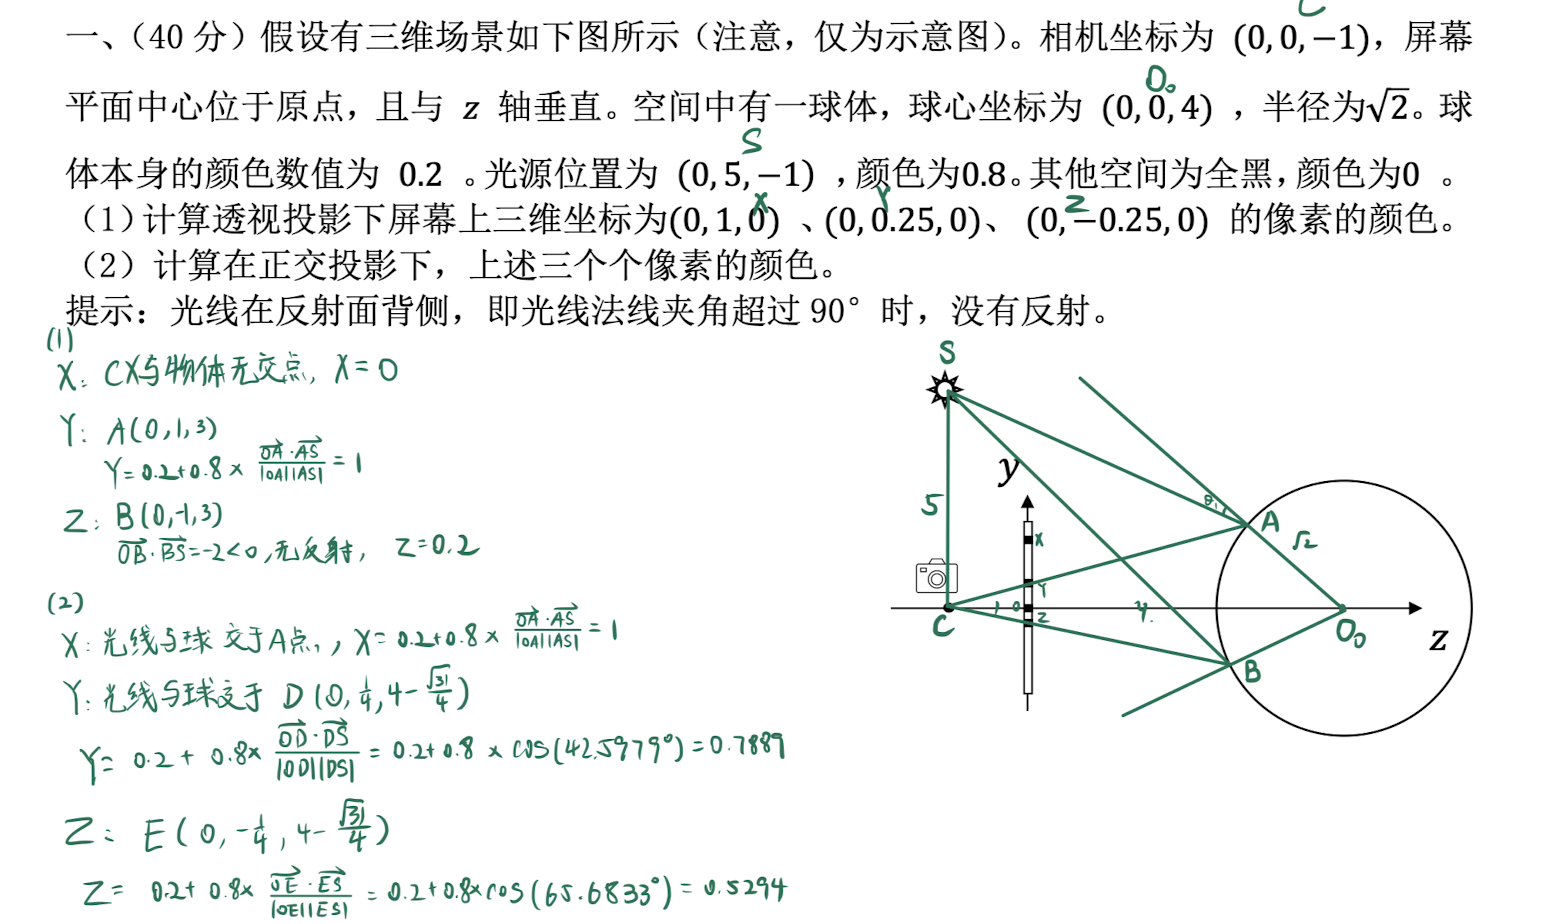 C
一、（40 分）假设有三维场景如下图所示（注意，仅为示意图）。相机坐标为 (0,0,−1)，屏幕
O₀
平面中心位于原点，且与 z 轴垂直。空间中有一球体，球心坐标为 (0,0,4) ，半径为√2。球
S
体本身的颜色数值为 0.2 。光源位置为 (0,5,−1) ，颜色为0.8。其他空间为全黑，颜色为0 。
X Y Z
（1）计算透视投影下屏幕上三维坐标为(0,1,0) 、(0,0.25,0)、 (0,−0.25,0) 的像素的颜色。
（2）计算在正交投影下，上述三个个像素的颜色。
提示：光线在反射面背侧，即光线法线夹角超过 90° 时，没有反射。
(1)
X: CX与物体无交点, X=0
Y: A(0,1,3)
Y=0.2+0.8× OA·AS / |OA||AS| = 1
Z: B(0,-1,3)
OB·BS=-2<0,无反射, Z=0.2
(2)
X:光线与球交于A点, X=0.2+0.8× OA·AS / |OA||AS| = 1
Y:光线与球交于 D(0,1/4,4-√31/4)
Y= 0.2+ 0.8× OD·DS / |OD||DS| = 0.2+0.8×cos(42.5979°)=0.7889
Z: E(0,-1/4,4-√31/4)
Z= 0.2+ 0.8× OE·ES / |OE||ES| = 0.2+0.8×cos(65.6833°)=0.5294
S
y
5
X
θ₁
A
√2
Y
1
0
Z
4
C
B
O₀
z